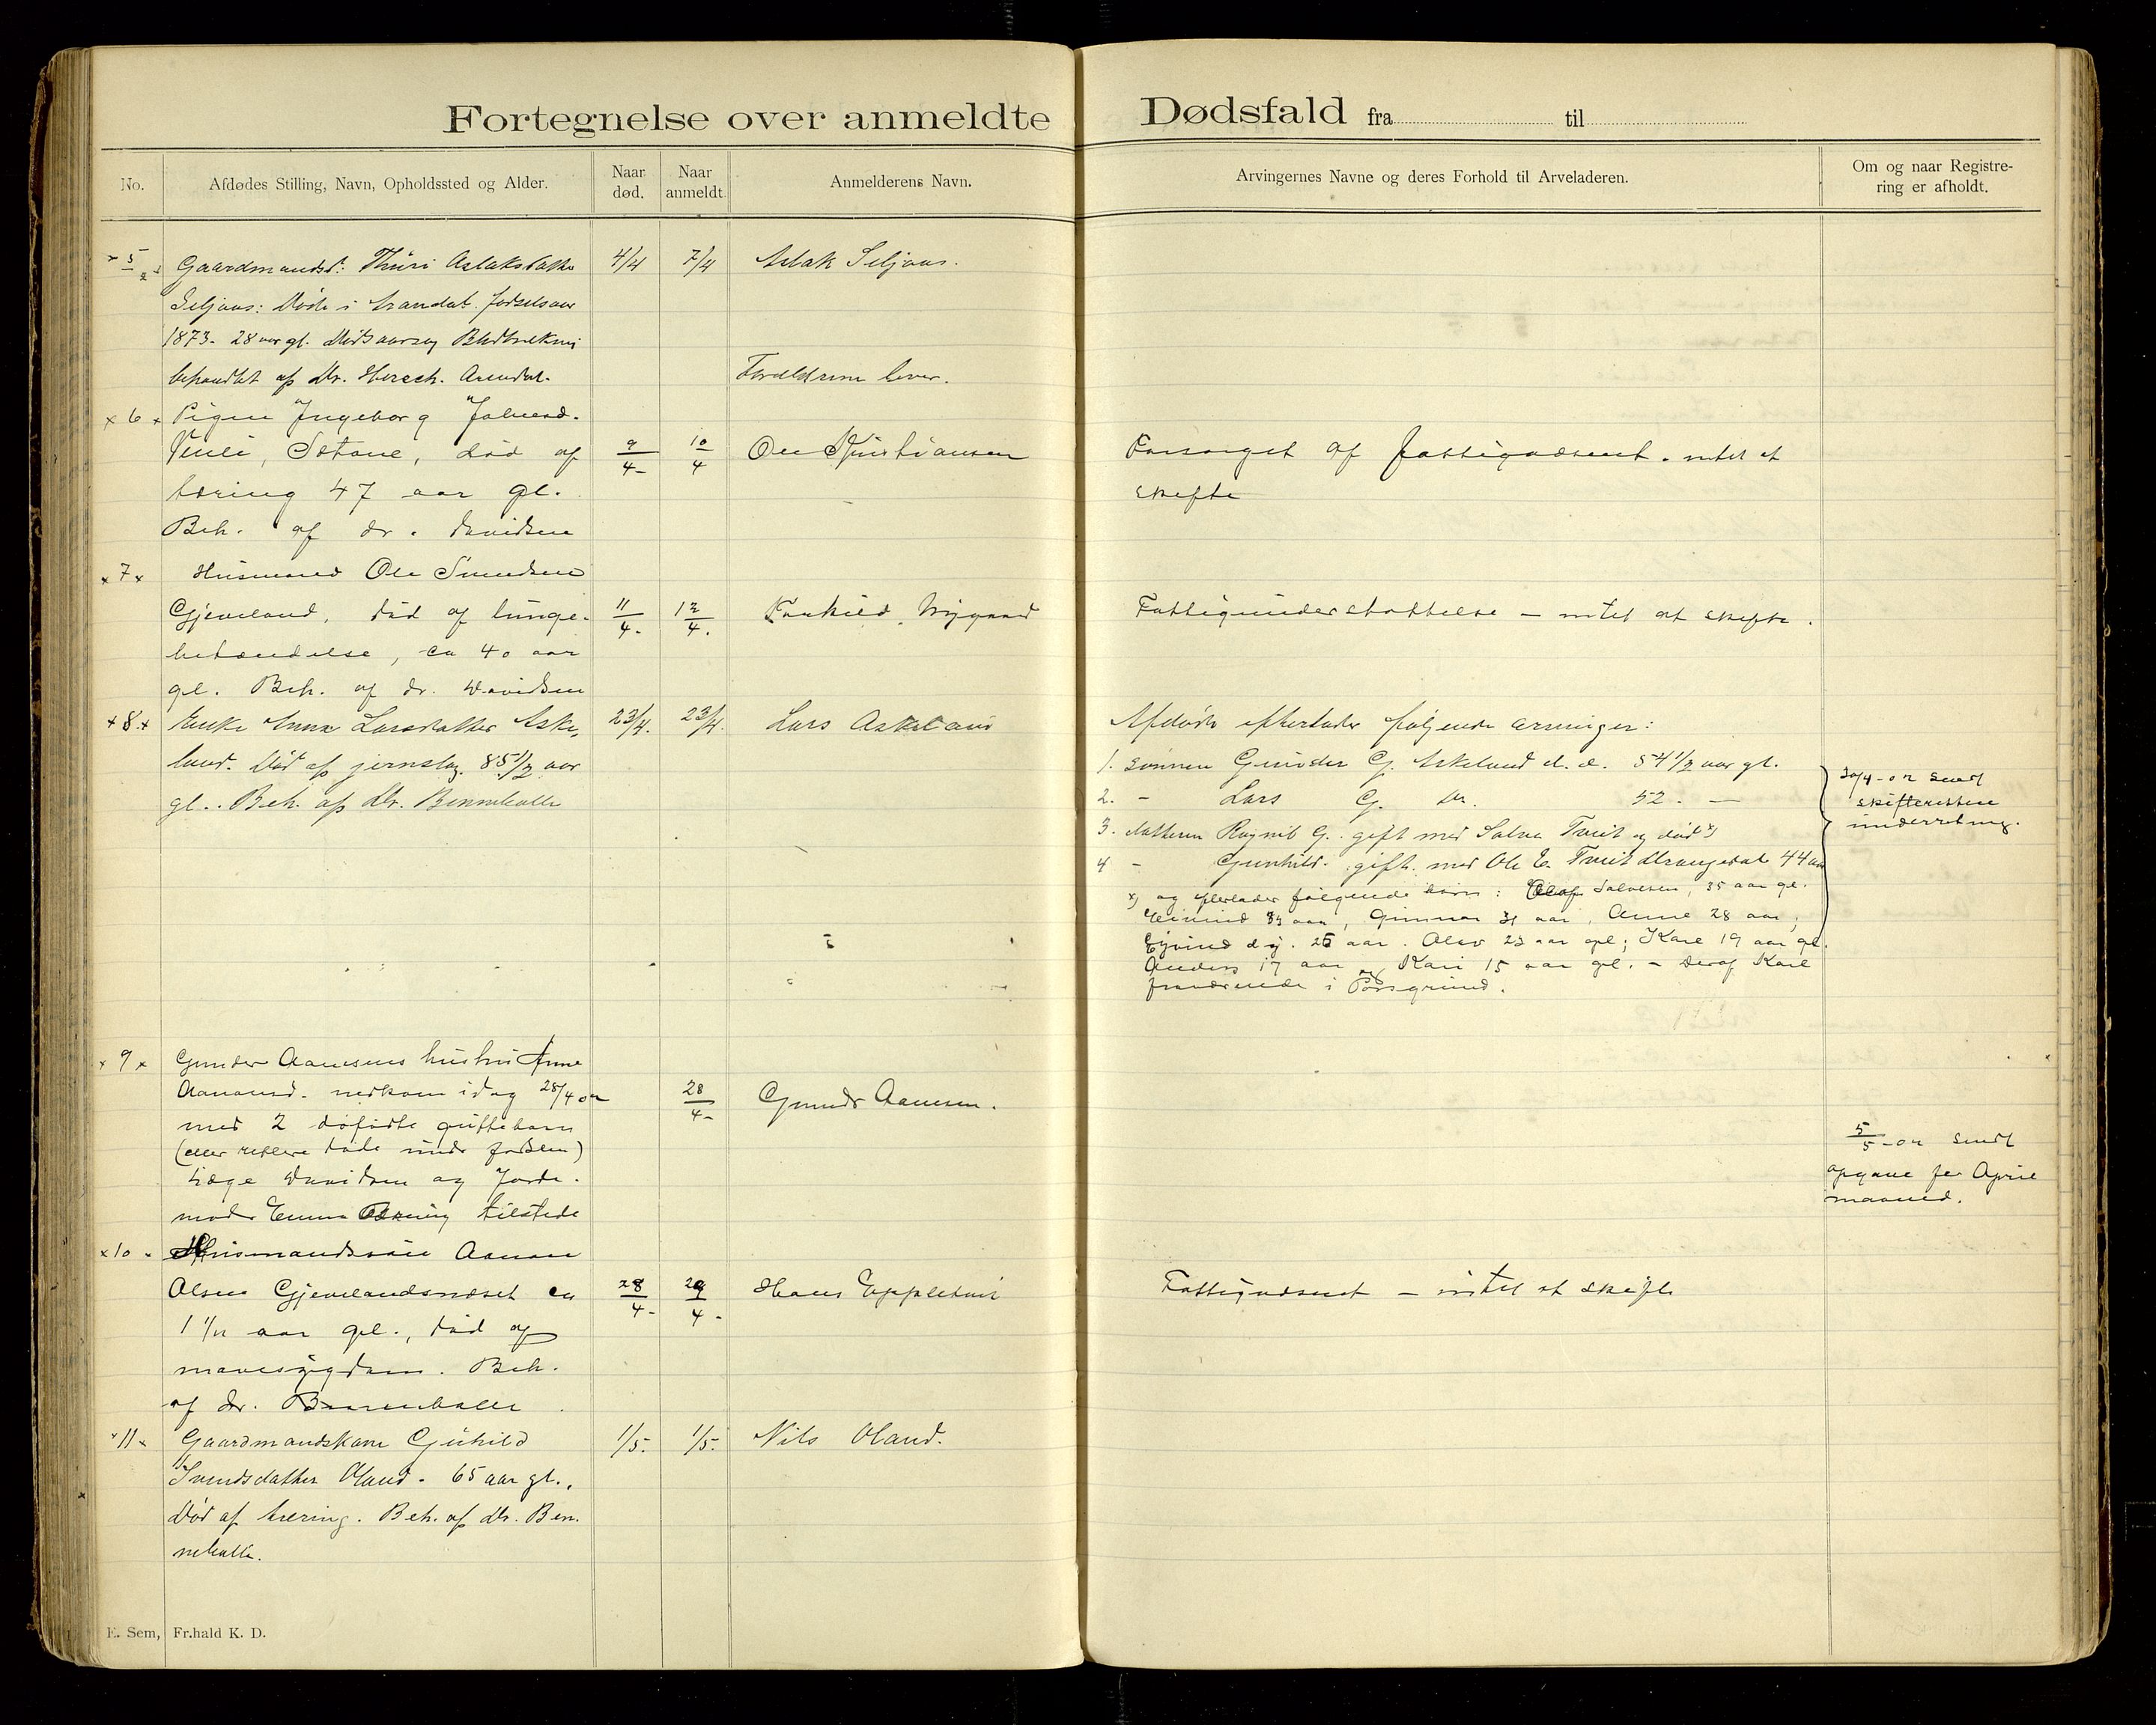 Fortegnelse over anmeldte Dødsfald fra til
No.
Afdødes Stilling, Navn, Opholdssted og Alder.
Naar død.
Naar anmeldt.
Anmelderens Navn.
Arvingernes Navne og deres Forhold til Arveladeren.
Om og naar Registrering er afholdt.
5 Gaardmandsd: Thuri Aslaksdatter 4/4 7/4 Aslak Seljaas.
Seljaas: Døde i Arendal. Fødselsaar
1873. 28 aar gl. Dødsaarsag
behandlet af Dr. Hersch. Arendal. Forældrene lever.
x 6 x Pigen Ingeborg
, død af 9/4- 10/4 Ole Kristiansen Forsørget af fattigvæsenet. intet at
tæring 47 aar gl. skifte
Beh. af dr. Davidsen
x 7 x Husmand Ole
Gjeveland, død af lunge- 11/4- 12/4. Nygaard Fattigunderstøttelse – intet at skifte.
betændelse, ca 40 aar
gl. Beh. af dr. Davidsen
x 8 x Enke Anna Larsdatter Aske- 23/4. 23/4. Lars Askeland Afdøde efterlader følgende arvinger:
land. Død af jernslag. 85 1/2 aar 1. sønnen Gunder G. Askeland d. æ. 54 1/2 aar gl.
gl.. Beh. af Dr. Bennekalle 2. - Lars G. Do. 52. —
3. datteren Ragnil G. gift med Salve Tveit og død x)
4 - Gunhild. gift. med Ole E. Tveit Drangedal 44 aar
x) og efterlader følgende børn: Olaf Salvesen, 35 aar gl.
Eivind 33 aar, Gunnar 31 aar, Anne 28 aar,
Eyvind d. y. 25 aar. Olav 23 aar gl; Karl 19 aar gl.
Anders 17 aar og Kari 15 aar gl. – Deraf Karl
fraværende i Porsgrund.
30/4-02 sendt
skifteretten
underretning.
x 9 x Gunder Aanesens hustru Anne
Aanonsd. nedkom idag 28/4 02 28/4- Gunder Aanesen.
med 2 dødfødte guttebarn
(eller rettere døde under fødslen)
Læge Davidsen og Jorde-
moder Emma tilstede
5/5-02 sendt
opgave for April
maaned.
x 10 - Husmandssøn Aanon
Olsen Gjevelandsneset ca 28/4- 29/4- Hans Eppletveit Fattigvæsenet – intet at skifte
1 1/12 aar gl., død af
mavesygdom. Beh.
af dr. Bennekalle.
x 11 x Gaardmandskone Gunhild 1/5. 1/5. Nils Oland.
Svendsdatter Oland. 65 aar gl..
Død af tæring. Beh. af Dr. Ben-
nekalle.
E. Sem, Fr.hald K. D.